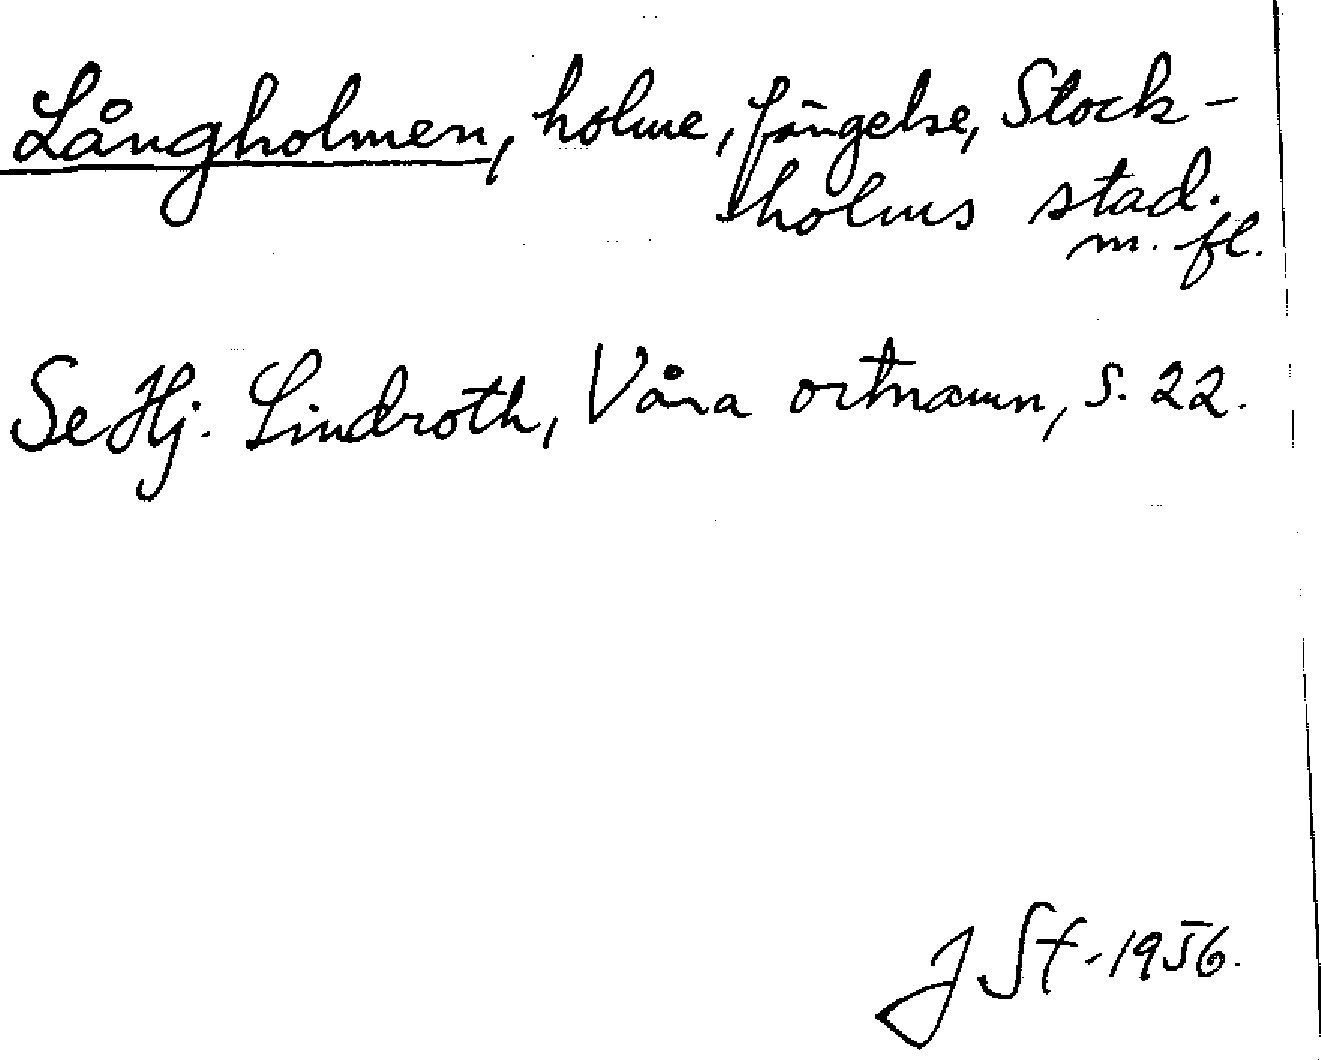 Långholmen, holme, fängelse, Stock-
holms stad.
m. fl.
Se Hj. Lindroth, Våra ortnamn, s. 22.
J St-1956.